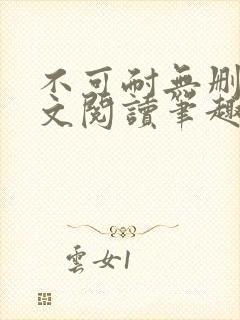 不可耐無刪
文閱讀筆趣
雲女1